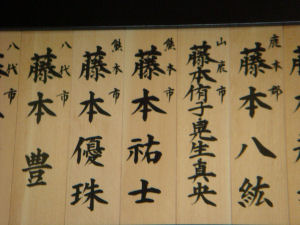 鹿本郡
藤本八紘
山鹿市
藤本侑子
真央
熊本市
藤本祐士
熊本市
藤本優珠
八代市
藤本豊
八代市